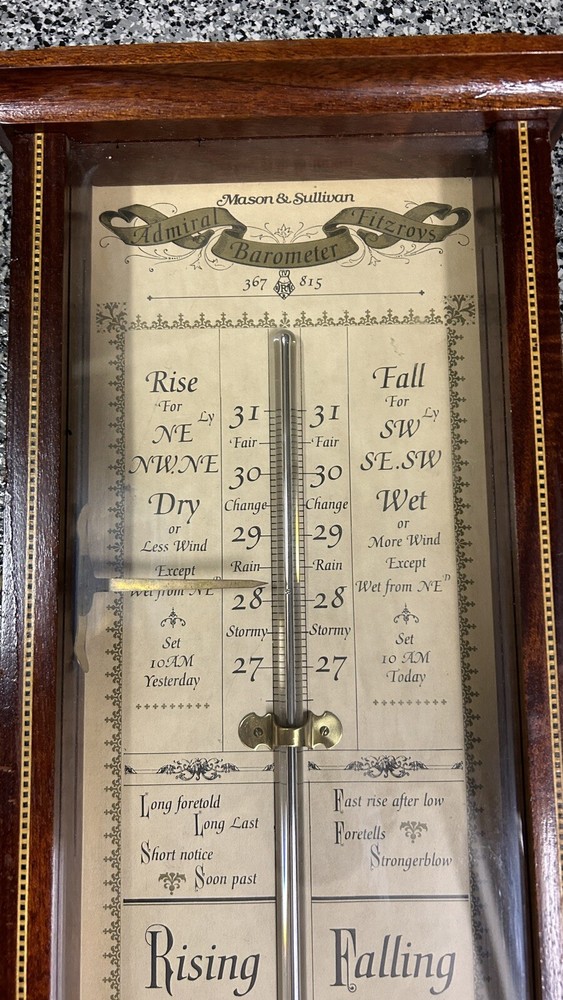 Mason & Sullivan
Admiral Fitzroys
Barometer
367 815
Rise
For
Ly
NE
NW.NE
Dry
or
Less Wind
Except
Wet from NED
Set
10AM
Yesterday
31
Fair
30
Change
29
Rain
28
Stormy
27
31
Fair
30
Change
29
Rain
28
Stormy
27
Fall
For
Ly
SW
SE.SW
Wet
or
More Wind
Except
Wet from NED
Set
10 AM
Today
Long foretold
Long Last
Short notice
Soon past
Fast rise after low
Foretells
Strongerblow
Rising
Falling